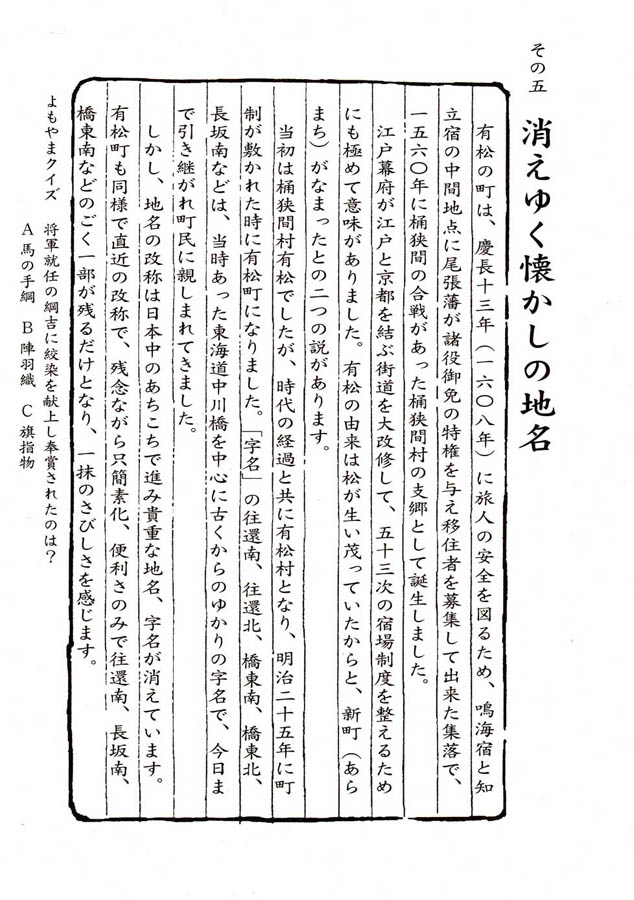 その五
消えゆく懐かしの地名
有松の町は、慶長十三年（一六〇八年）に旅人の安全を図るため、鳴海宿と知
立宿の中間地点に尾張藩が諸役御免の特権を与え移住者を募集して出来た集落で、
一五六〇年に桶狭間の合戦があった桶狭間村の支郷として誕生しました。
江戸幕府が江戸と京都を結ぶ街道を大改修して、五十三次の宿場制度を整えるため
にも極めて意味がありました。有松の由来は松が生い茂っていたからと、新町（あら
まち）がなまったとの二つの説があります。
当初は桶狭間村有松でしたが、時代の経過と共に有松村となり、明治二十五年に町
制が敷かれた時に有松町になりました。「字名」の往還南、往還北、橋東南、橋東北、
長坂南などは、当時あった東海道中川橋を中心に古くからのゆかりの字名で、今日ま
で引き継がれ町民に親しまれてきました。
しかし、地名の改称は日本中のあちこちで進み貴重な地名、字名が消えています。
有松町も同様で直近の改称で、残念ながら只簡素化、便利さのみで往還南、長坂南、
橋東南などのごく一部が残るだけとなり、一抹のさびしさを感じます。
よもやまクイズ　将軍就任の綱吉に絞染を献上し奉賞されたのは？
A 馬の手綱　B 陣羽織　C 旗指物